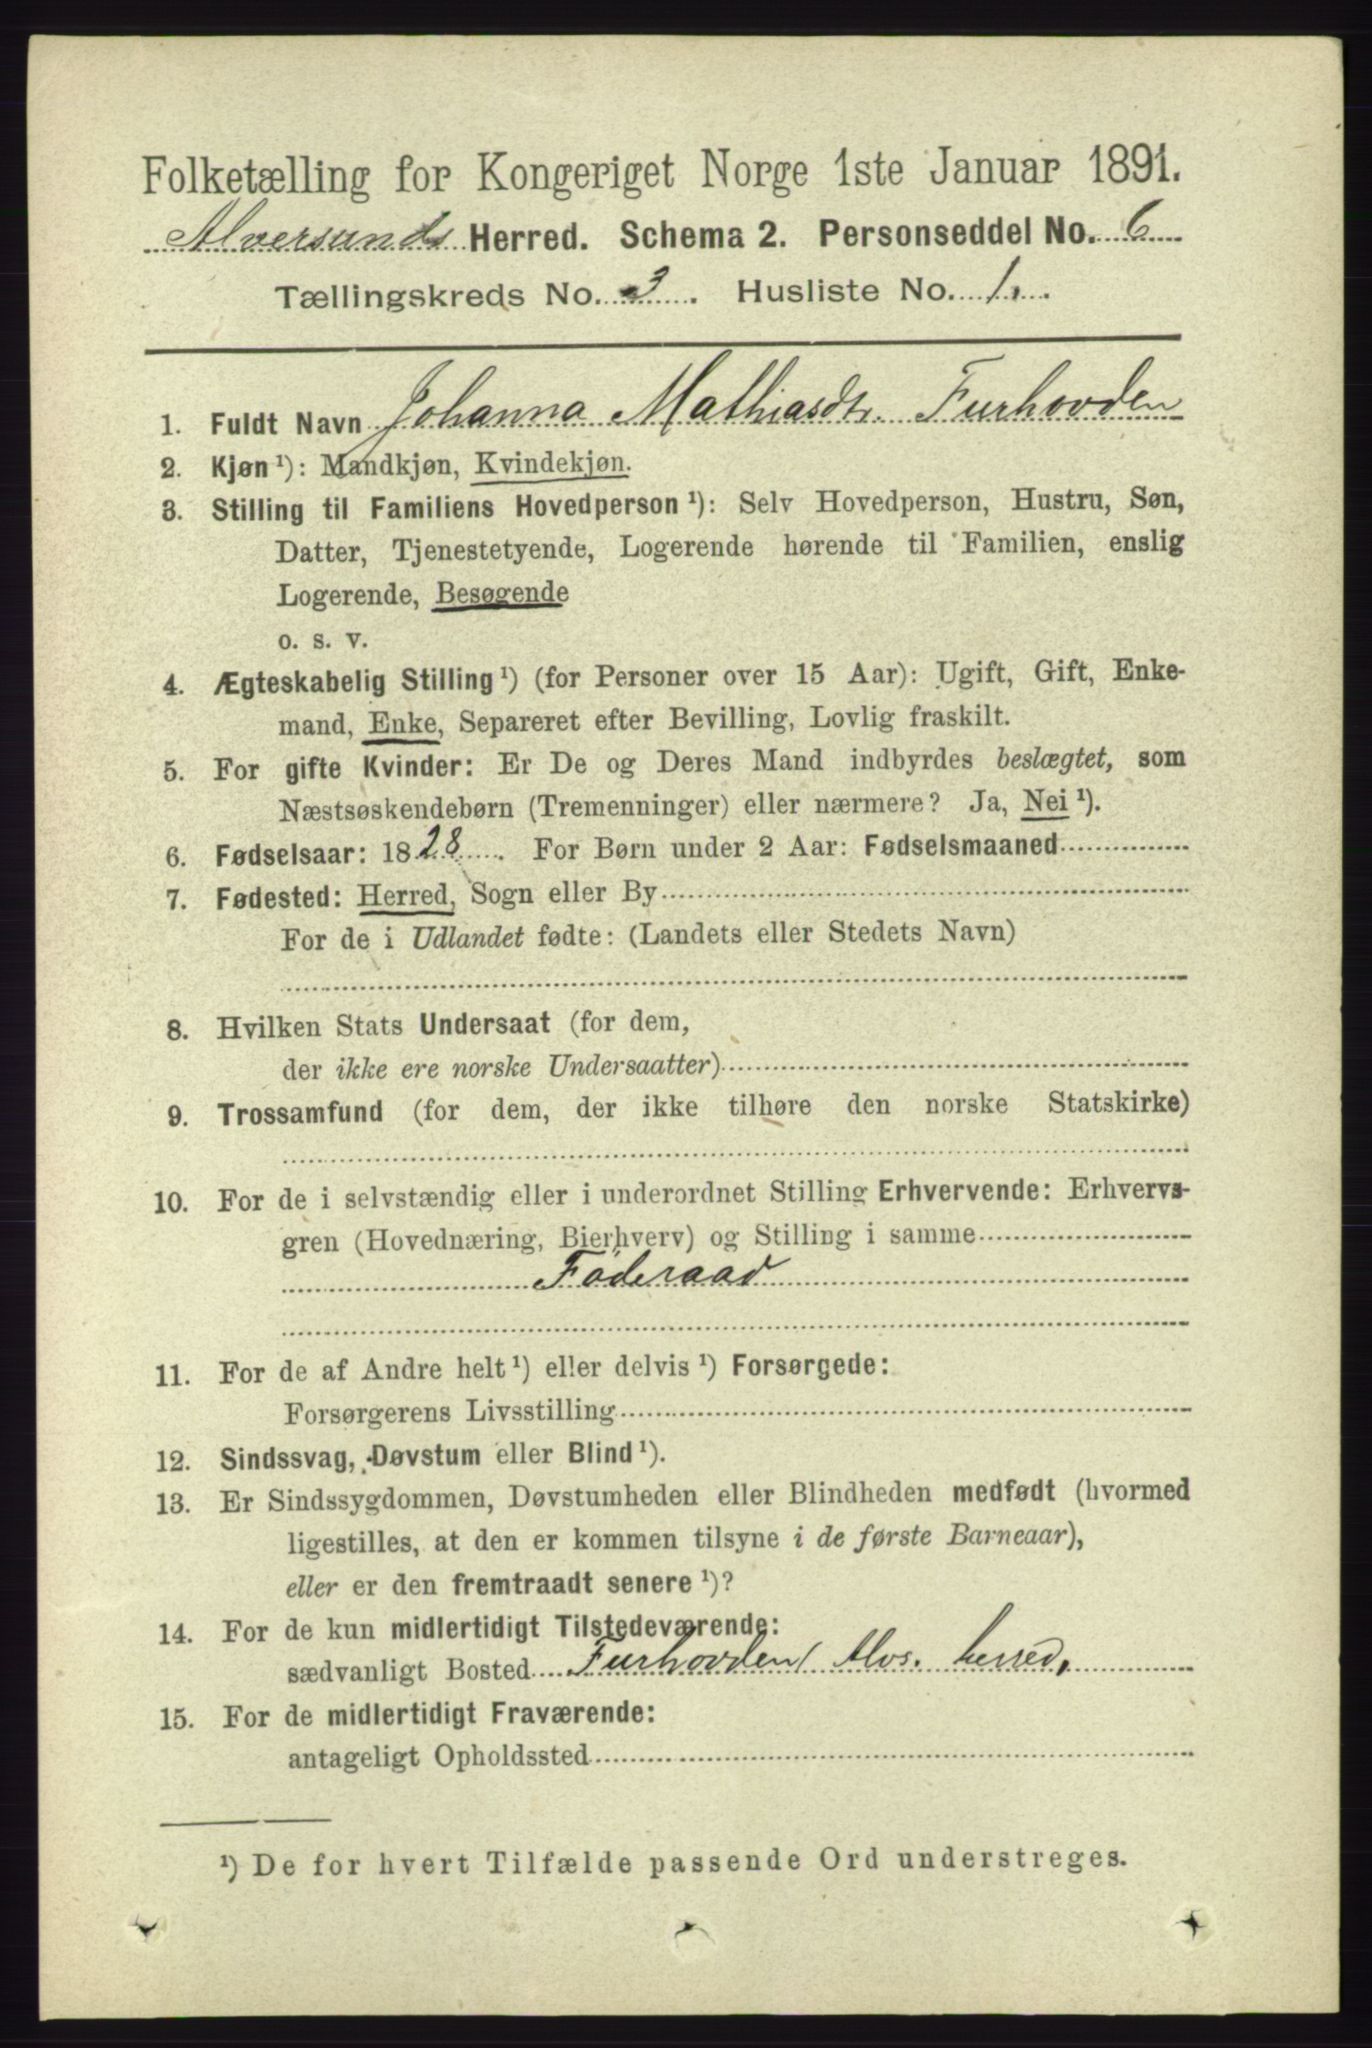 Folketælling for Kongeriget Norge 1ste Januar 1891.
Alversunds Herred. Schema 2. Personseddel No. 6
Tællingskreds No. 3. Husliste No. 1.
1. Fuldt Navn Johanna Mathiasdtr. Furhovden
2. Kjøn ¹): Mandkjøn, Kvindekjøn.
3. Stilling til Familiens Hovedperson ¹): Selv Hovedperson, Hustru, Søn,
Datter, Tjenestetyende, Logerende hørende til Familien, enslig
Logerende, Besøgende
o. s. v.
4. Ægteskabelig Stilling ¹) (for Personer over 15 Aar): Ugift, Gift, Enke-
mand, Enke, Separeret efter Bevilling, Lovlig fraskilt.
5. For gifte Kvinder: Er De og Deres Mand indbyrdes beslægtet, som
Næstsøskendebørn (Tremenninger) eller nærmere? Ja, Nei ¹).
6. Fødselsaar: 1828. For Børn under 2 Aar: Fødselsmaaned
7. Fødested: Herred, Sogn eller By
For de i Udlandet fødte: (Landets eller Stedets Navn)
8. Hvilken Stats Undersaat (for dem,
der ikke ere norske Undersaatter)
9. Trossamfund (for dem, der ikke tilhøre den norske Statskirke)
10. For de i selvstændig eller i underordnet Stilling Erhvervende: Erhvervs-
gren (Hovednæring, Bierhverv) og Stilling i samme
Föderaad
11. For de af Andre helt ¹) eller delvis ¹) Forsørgede:
Forsørgerens Livsstilling
12. Sindssvag, Døvstum eller Blind ¹).
13. Er Sindssygdommen, Døvstumheden eller Blindheden medfødt (hvormed
ligestilles, at den er kommen tilsyne i de første Barneaar),
eller er den fremtraadt senere ¹)?
14. For de kun midlertidigt Tilstedeværende:
sædvanligt Bosted Furhovden, Alvs. herred,
15. For de midlertidigt Fraværende:
antageligt Opholdssted
¹) De for hvert Tilfælde passende Ord understreges.